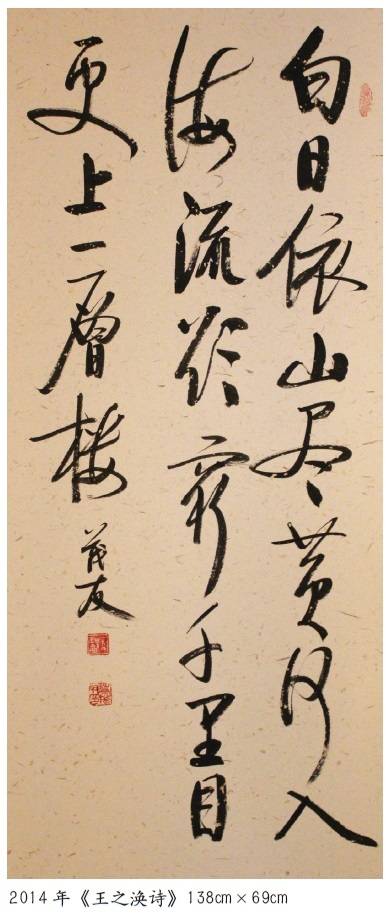 白日依山尽黄河入
海流欲窮千里目
更上一層楼
茂友
2014年《王之涣诗》138cm×69cm